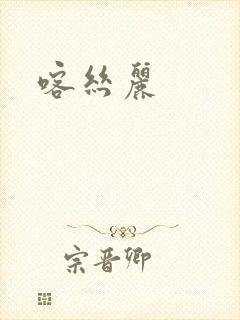 喀絲麗
宗晋卿